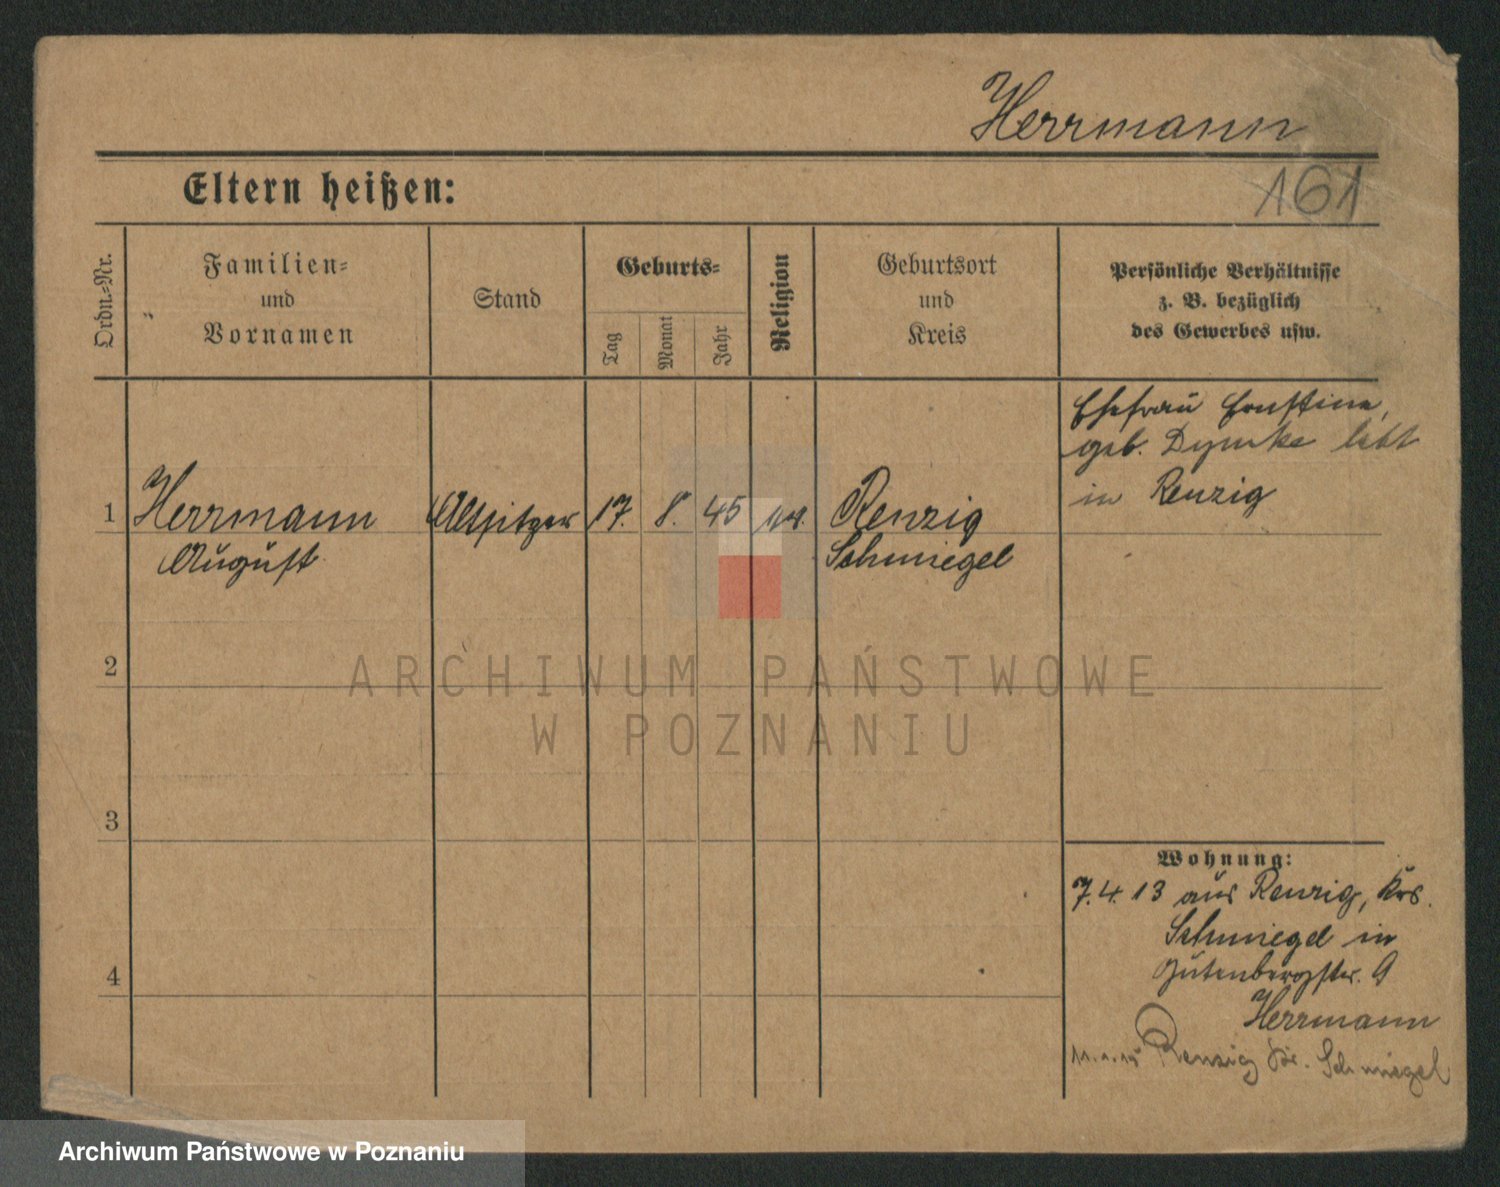 Herrmann
161
Eltern heißen:
Ordn.-Nr.
Familien-
und
Vornamen
Stand
Geburts-
Tag
Monat
Jahr
Religion
Geburtsort
und
Kreis
Persönliche Verhältnisse
z. B. bezüglich
des Gewerbes usw.
Ehefrau Ernstine,
geb. Dymke lebt
in Renzig
1 Herrmann Altsitzer 17. 8. 45 Renzig
August Schmiegel
2
3
4
Wohnung:
7.4.13 aus Renzig, Krs.
Schmiegel in
Gutenbergstr. 9
Herrmann
11.1.15 Renzig Kr. Schmiegel
ARCHIWUM PAŃSTWOWE
W POZNANIU
Archiwum Państwowe w Poznaniu